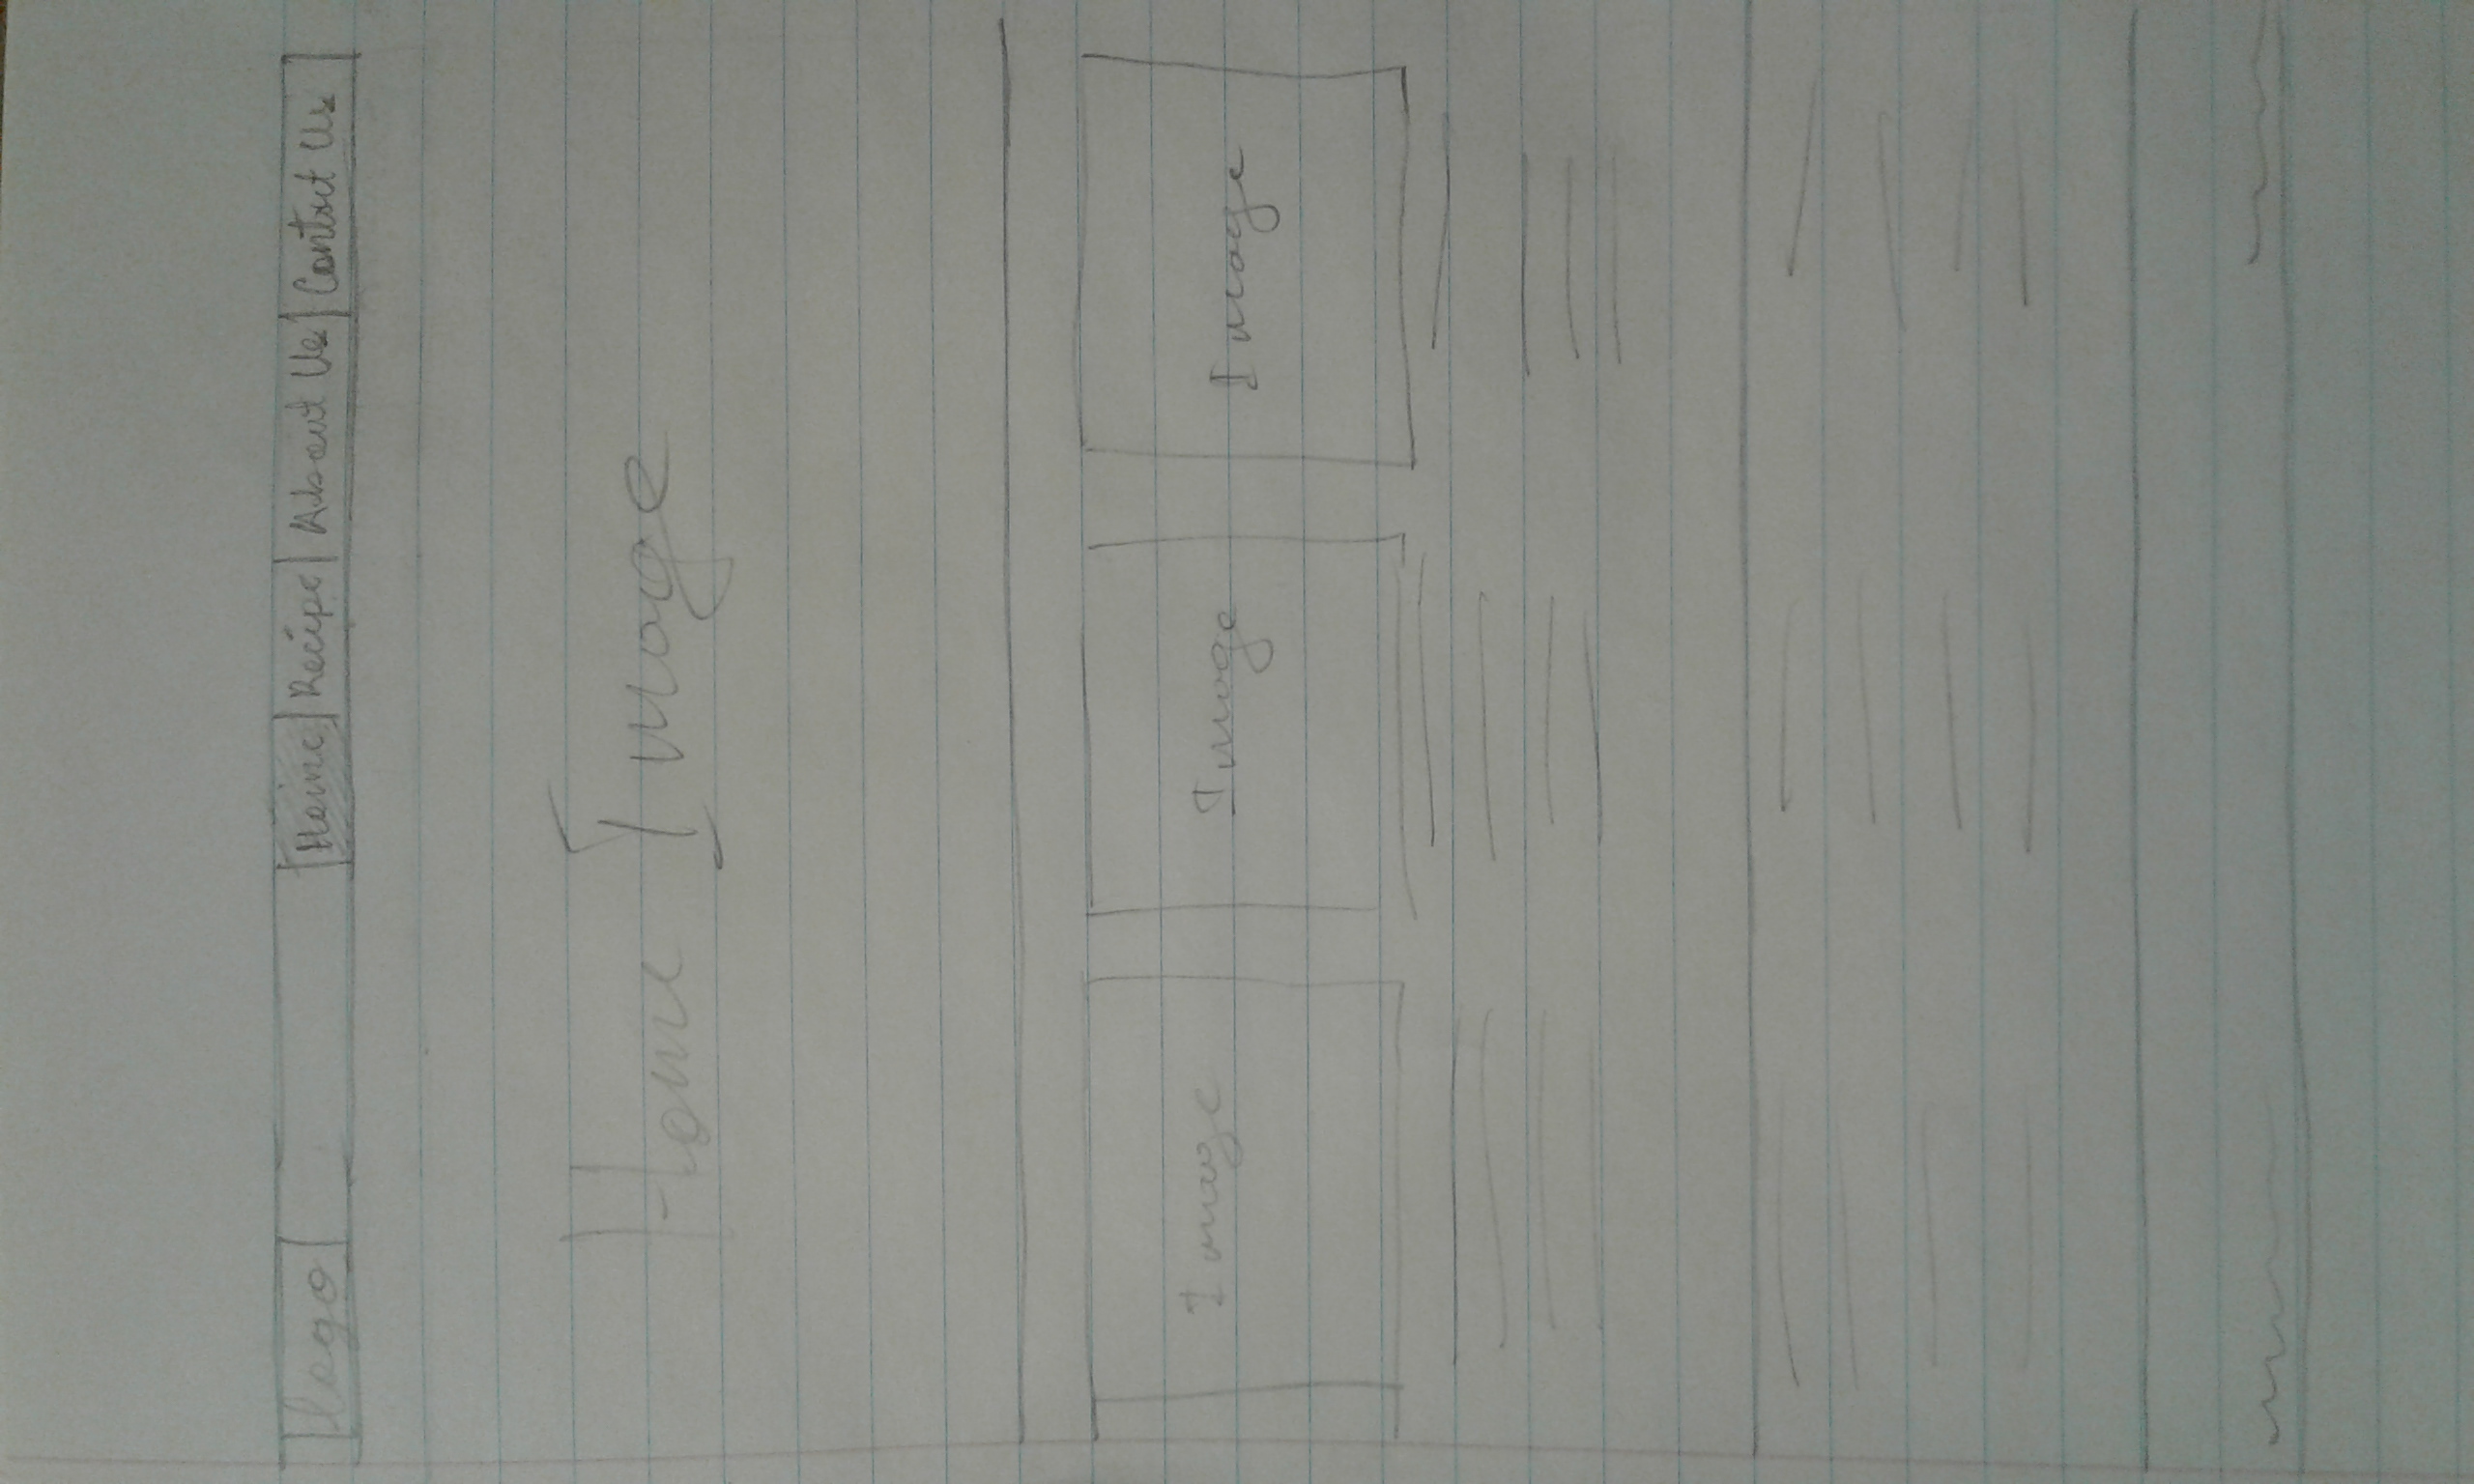 logo Home Recipe About Us Contact Us
Home Image
Image Image Image